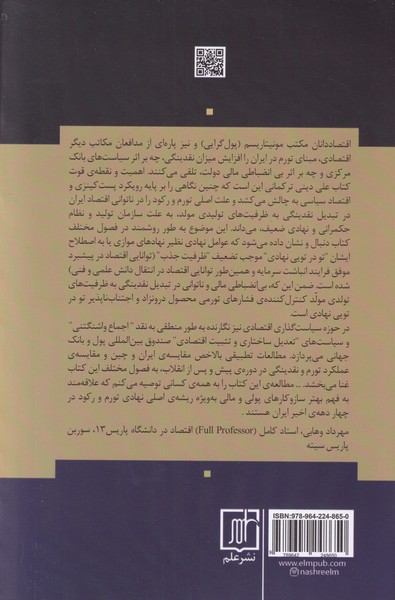 اقتصاددانان مکتب مونیتاریسم (پول‌گرایی) و نیز پاره‌ای از مدافعان مکاتب دیگر
اقتصادی، مبنای تورم در ایران را افزایش میزان نقدینگی، چه بر اثر سیاست‌های بانک
مرکزی و چه بر اثر بی انضباطی مالی دولت، تلقی می‌کنند. اهمیت و نقطه‌ی قوت
کتاب علی دینی ترکمانی این است که چنین نگاهی را بر پایه رویکرد پست‌کینزی و
اقتصاد سیاسی به چالش می‌کشد و علت اصلی تورم و رکود را در ناتوانی اقتصاد ایران
در تبدیل نقدینگی به ظرفیت‌های تولیدی مولد، به علت سازمان تولید و نظام
حکمرانی و نهادی ضعیف، می‌داند. این موضوع به طور روشمند در فصول مختلف
کتاب دنبال و نشان داده می‌شود که عوامل نهادی نظیر نهادهای موازی یا به اصطلاح
ایشان "تو در تویی نهادی" موجب تضعیف "ظرفیت جذب" (توانایی اقتصاد در پیشبرد
موفق فرایند انباشت سرمایه و همین‌طور توانایی اقتصاد در انتقال دانش علمی و فنی)
شده است. ضمن این که، بی‌انضباطی مالی و ناتوانی در تبدیل نقدینگی به ظرفیت‌های
تولدی مولّد کنترل‌کننده‌ی فشارهای تورمی محصول درونزاد و اجتناب‌ناپذیر تو در
تویی نهادی است.
در حوزه سیاست‌گذاری اقتصادی نیز نگارنده به طور منطقی به نقد "اجماع واشنگتنی"
و سیاست‌های "تعدیل ساختاری و تثبیت اقتصادی" صندوق بین‌المللی پول و بانک
جهانی می‌پردازد. مطالعات تطبیقی بالاخص مقایسه‌ی ایران و چین و مقایسه‌ی
عملکرد تورم و نقدینگی در دوره‌ی پیش و پس از انقلاب، به فصول مختلف این کتاب
غنا می‌بخشد. ... مطالعه‌ی این کتاب را به همه‌ی کسانی توصیه می‌کنم که علاقه‌مند
به فهم بهتر سازوکارهای پولی و مالی به‌ویژه ریشه‌ی اصلی نهادی تورم و رکود در
چهار دهه‌ی اخیر ایران هستند.
مهرداد وهابی، استاد کامل (Full Professor) اقتصاد در دانشگاه پاریس ۱۳، سوربن
پاریس سیته
ISBN:978-964-224-865-0
نشر علم
www.elmpub.com
nashreelm